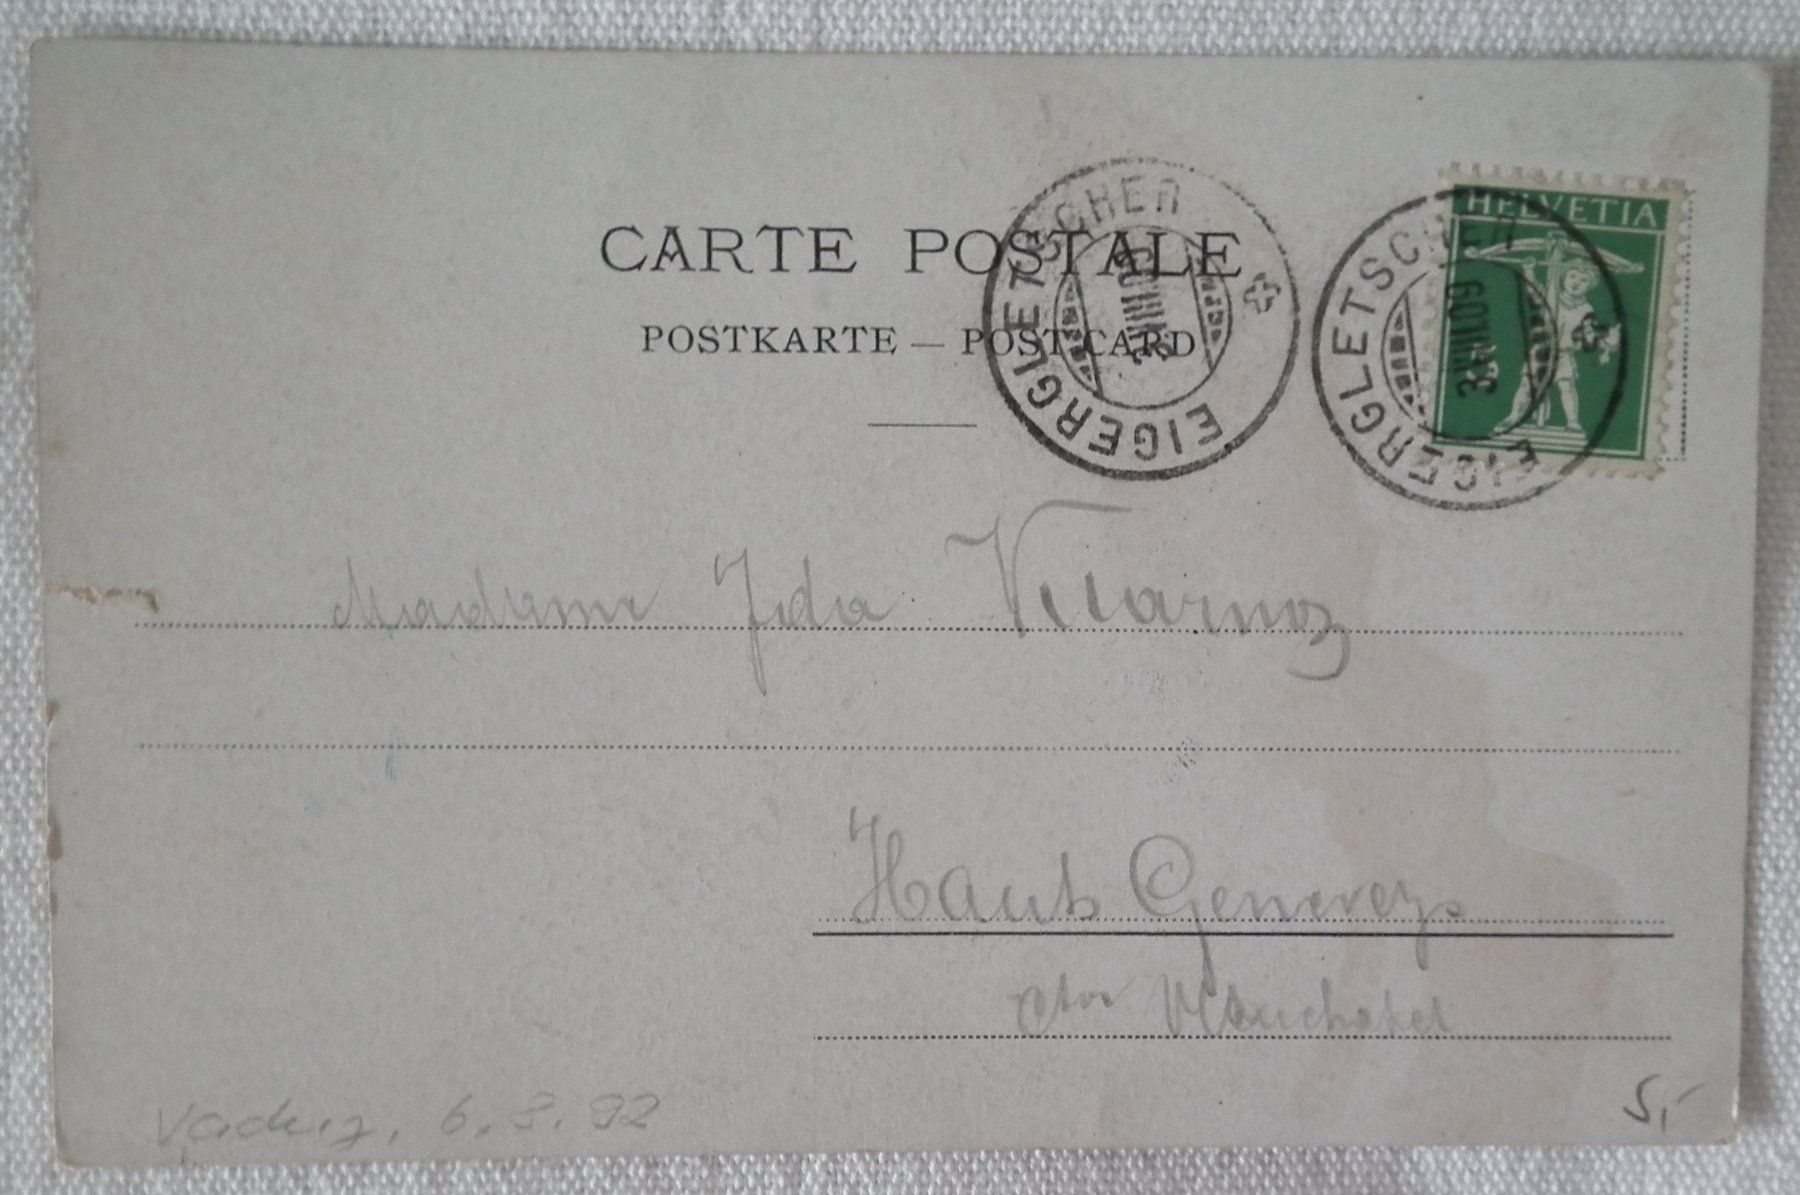 CARTE POSTALE
POSTKARTE — POST CARD
EIGERGLETSCHER
3.VIII.09
HELVETIA
EIGERGLETSCHER
3.VIII.09
Madame Ida
Hauts Geneveys
Ctn Neuchatel
Vaduz, 6.3.92
5,-